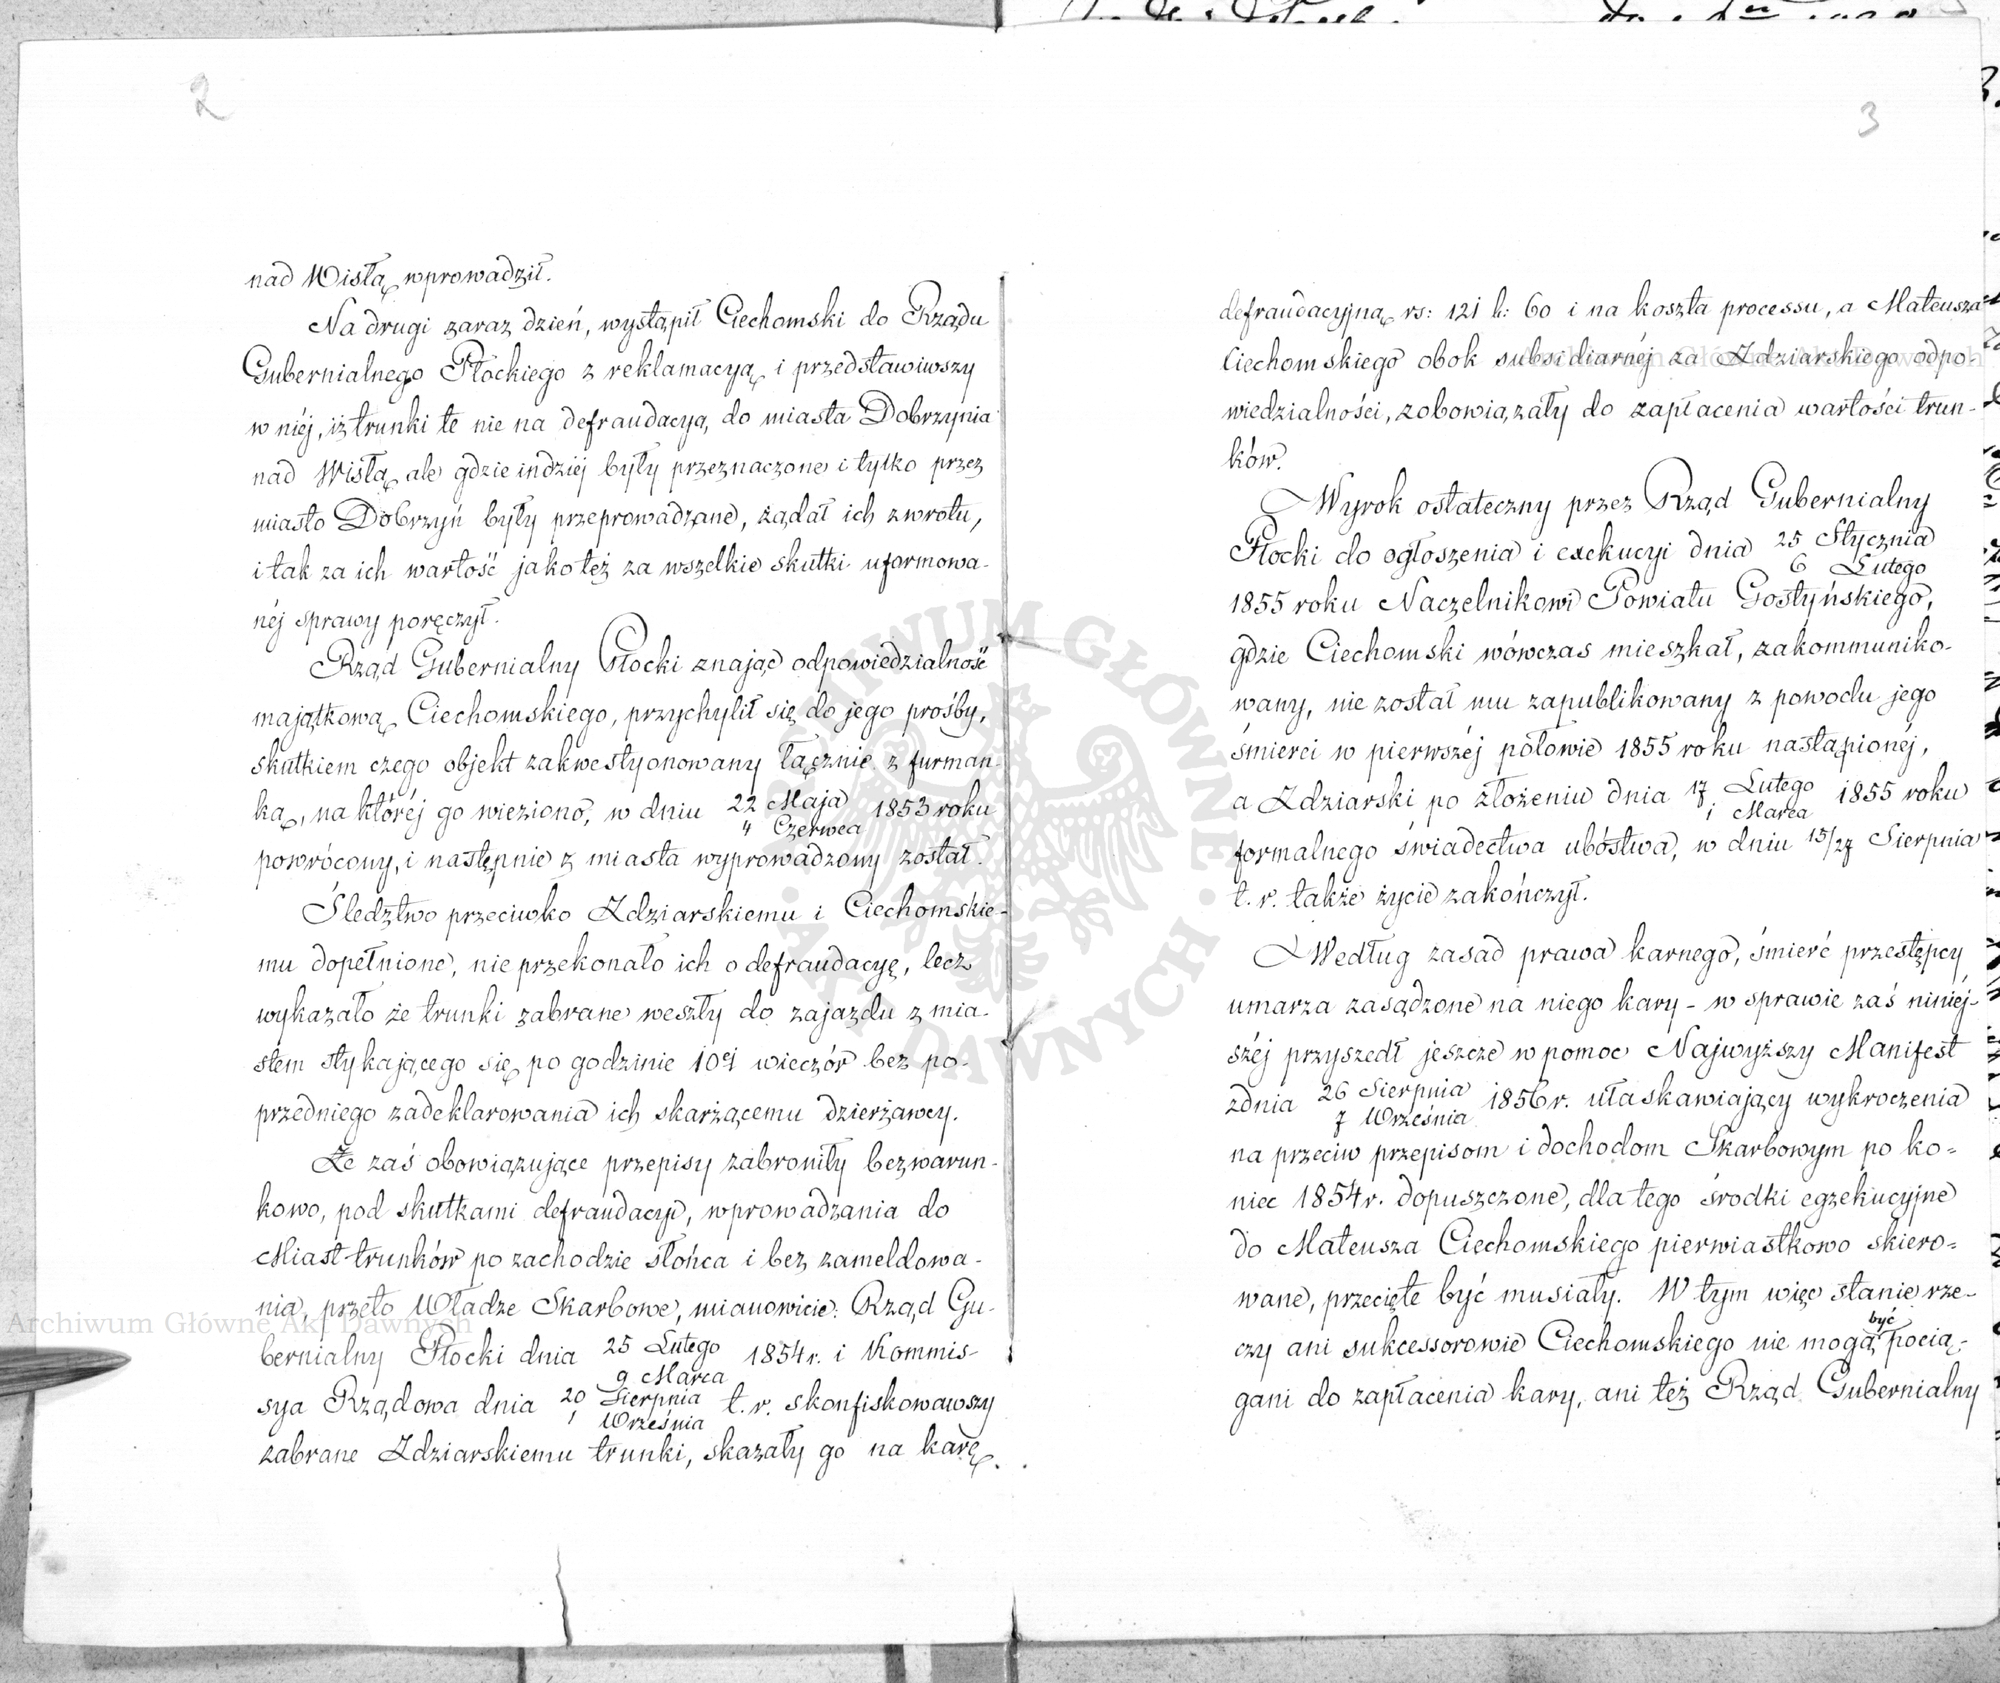 2
nad Wisłą wprowadził.
Na drugi zaraz dzień, wystąpił Ciechomski do Rządu
Gubernialnego Płockiego z reklamacyą i przedstawiwszy
w niéj, iż trunki te nie na defraudacyą, do miasta Dobrzynia
nad Wisłą ale gdzie indziéj były przeznaczone i tylko przez
miasto Dobrzyń były przeprowadzane, żądał ich zwrotu,
i tak za ich wartość jako też za wszelkie skutki uformowa-
néj sprawy poręczył.
Rząd Gubernialny Płocki znając odpowiedzialność
majątkową Ciechomskiego, przychylił się do jego prośby,
skutkiem czego objekt zakwestyonowany łącznie z furman-
ką, na któréj go wieziono, w dniu 22 Maja 1853 roku
" Czerwca
powrócony, i następnie z miasta wyprowadzony został.
Śledztwo przeciwko Zdziarskiemu i Ciechomskie-
mu dopełnione, nie przekonało ich o defraudacyę, lecz
wykazało że trunki zabrane weszły do zajazdu z mia-
stem stykającego się po godzinie 10éj wieczór bez po-
przedniego zadeklarowania ich skarżącemu dzierżawcy.
Że zaś obowiązujące przepisy zabroniły bezwarun-
kowo, pod skutkami defraudacyi, wprowadzania do
Miast trunków po zachodzie słońca i bez zameldowa-
nia, przeto Władze Skarbowe, mianowicie: Rząd Gu-
bernialny Płocki dnia 25 Lutego 1854 r. i Kommis-
9 Marca
sya Rządowa dnia 20 Sierpnia t. r. skonfiskowawszy
1 Września
zabrane Zdziarskiemu trunki, skazały go na karę
3
defraudacyjną rs: 121 k: 60 i na koszta processu, a Mateusza
Ciechomskiego obok subsidiarnéj za Zdziarskiego odpo-
wiedzialności, zobowiązały do zapłacenia wartości trun-
ków.
Wyrok ostateczny przez Rząd Gubernialny
Płocki do ogłoszenia i exekucyi dnia 25 Stycznia
6 Lutego
1855 roku Naczelnikowi Powiatu Gostyńskiego,
gdzie Ciechomski wówczas mieszkał, zakommuniko-
wany, nie został mu zapublikowany z powodu jego
śmierci w pierwszéj połowie 1855 roku nastąpionéj,
a Zdziarski po złożeniu dnia 17 Lutego 1855 roku
1 Marca
formalnego świadectwa ubóstwa, w dniu 15/27 Sierpnia
t. r. także życie zakończył.
Według zasad prawa karnego, śmierć przestępcy
umarza zasądzone na niego kary - w sprawie zaś niniéj-
széj przyszedł jeszcze w pomoc Najwyższy Manifest
z dnia 26 Sierpnia 1856 r. ułaskawiający wykroczenia
7 Września
na przeciw przepisom i dochodom Skarbowym po ko=
niec 1854 r. dopuszczone, dla tego środki egzekucyjne
do Mateusza Ciechomskiego pierwiastkowo skiero=
wane, przecięte być musiały. W tym więc stanie rze-
czy ani sukcessorowie Ciechomskiego nie mogą być pocią-
gani do zapłacenia kary, ani też Rząd Gubernialny
Archiwum Główne Akt Dawnych
ARCHIWUM GŁÓWNE AKT DAWNYCH